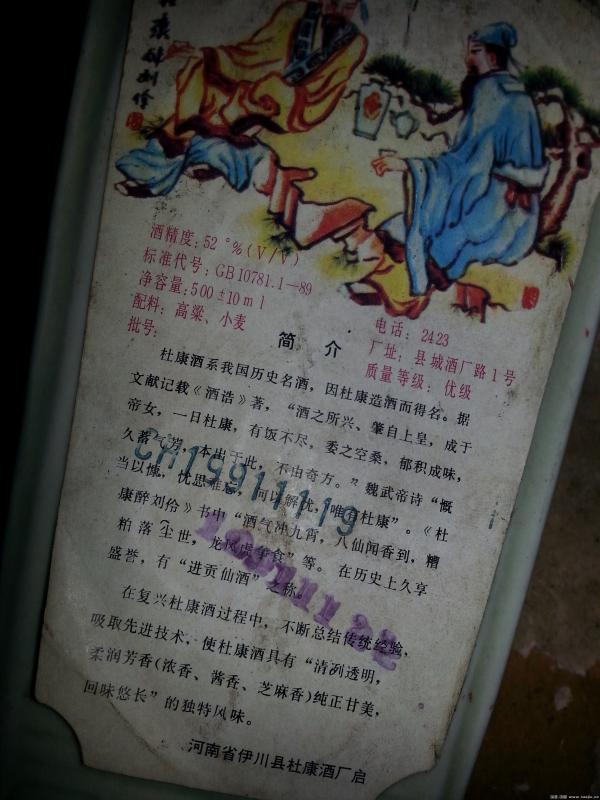 杜康醉刘伶
酒精度:52°%(V/V)
标准代号:GB10781.1—89
净容量:500±10ml
配料:高粱、小麦
批号:
电话:2423
厂址:县城酒厂路1号
质量等级:优级
简介
杜康酒系我国历史名酒,因杜康造酒而得名。据
文献记载《酒浩》著,“酒之所兴、肇自上皇,成于
帝女,一日杜康,有饭不尽,委之空桑,郁积成味,
久蓄气芳,本出于此,不由奇方。”魏武帝诗“慨
当以慷,忧思难忘,何以解忧,唯有杜康”。《杜
康醉刘伶》书中“酒气冲九宵,八仙闻香到,糟
粕落尘世,龙凤虎争食”等。在历史上久享
盛誉,有“进贡仙酒”之称。
CH19911119
在复兴杜康酒过程中,不断总结传统经验,
吸取先进技术,使杜康酒具有“清冽透明,
柔润芳香(浓香、酱香、芝麻香)纯正甘美,
回味悠长”的独特风味。
河南省伊川县杜康酒厂启